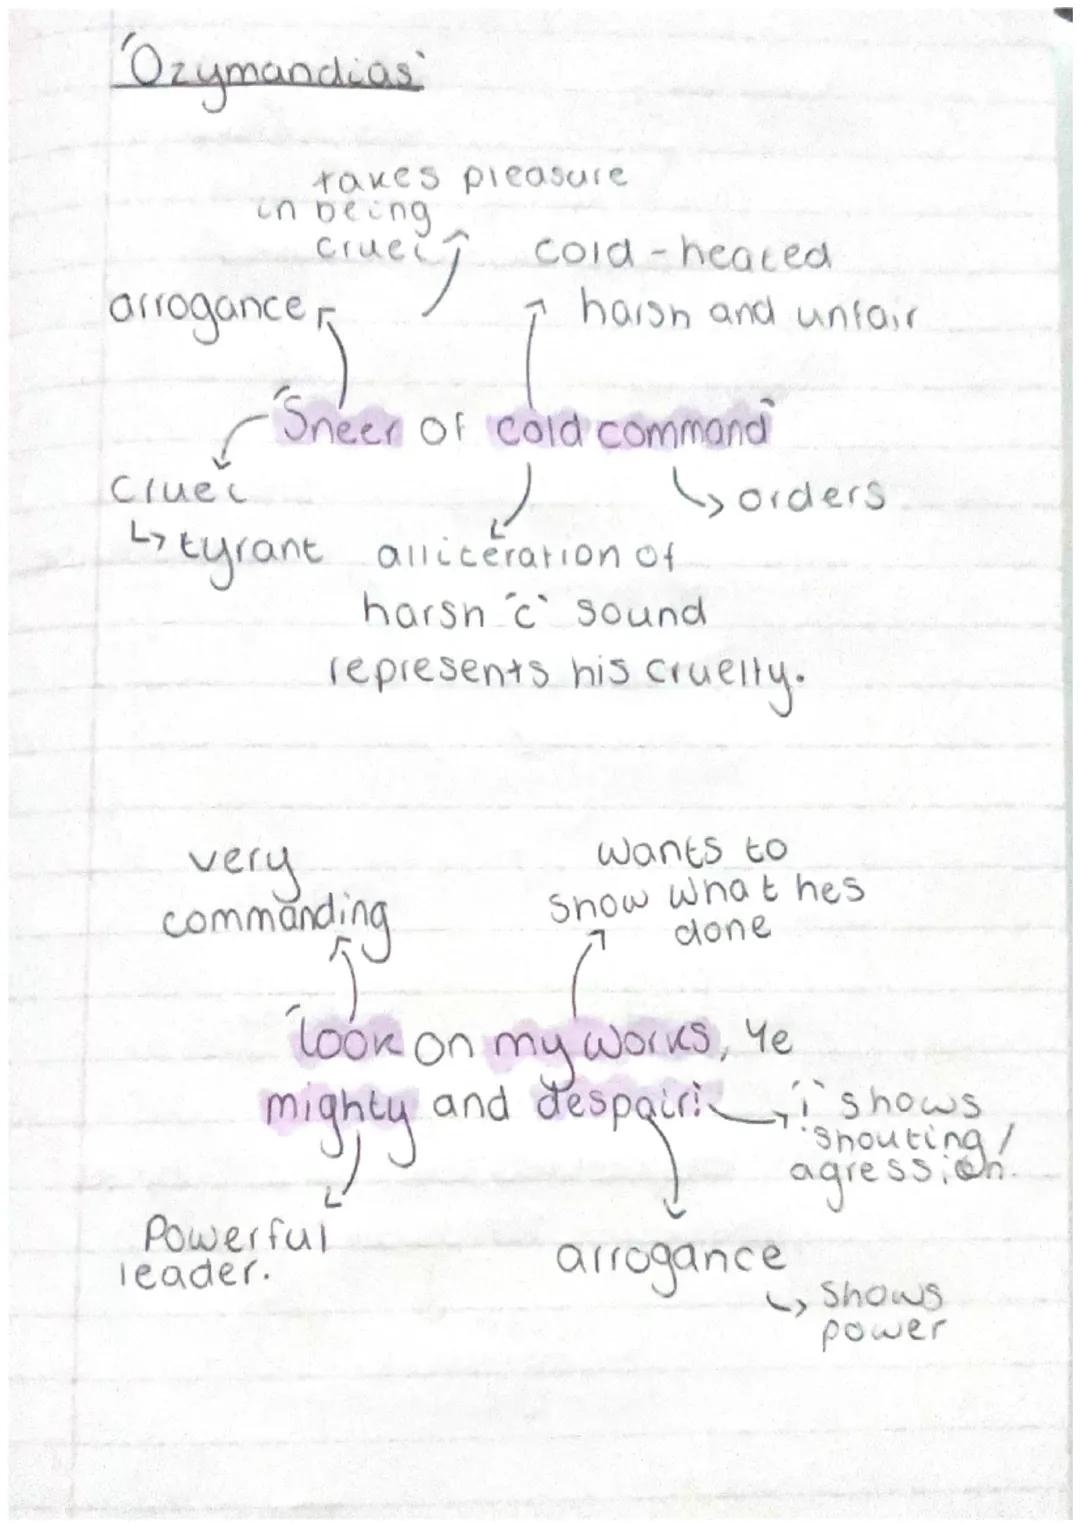 'Ozymandias'
takes pleasure
in being
cruel
cold-heated
arrogance
harsh and unfair
"Sneer of cold command"
cruel
↳ orders
↳ tyrant
alliteration of
harsh 'c' sound
represents his cruelty.
very
commanding
wants to
show what hes
done
"look on my works, Ye
mighty and despair!
'!' shows
shouting/
agression.
Powerful
leader.
arrogance
↳ shows
power